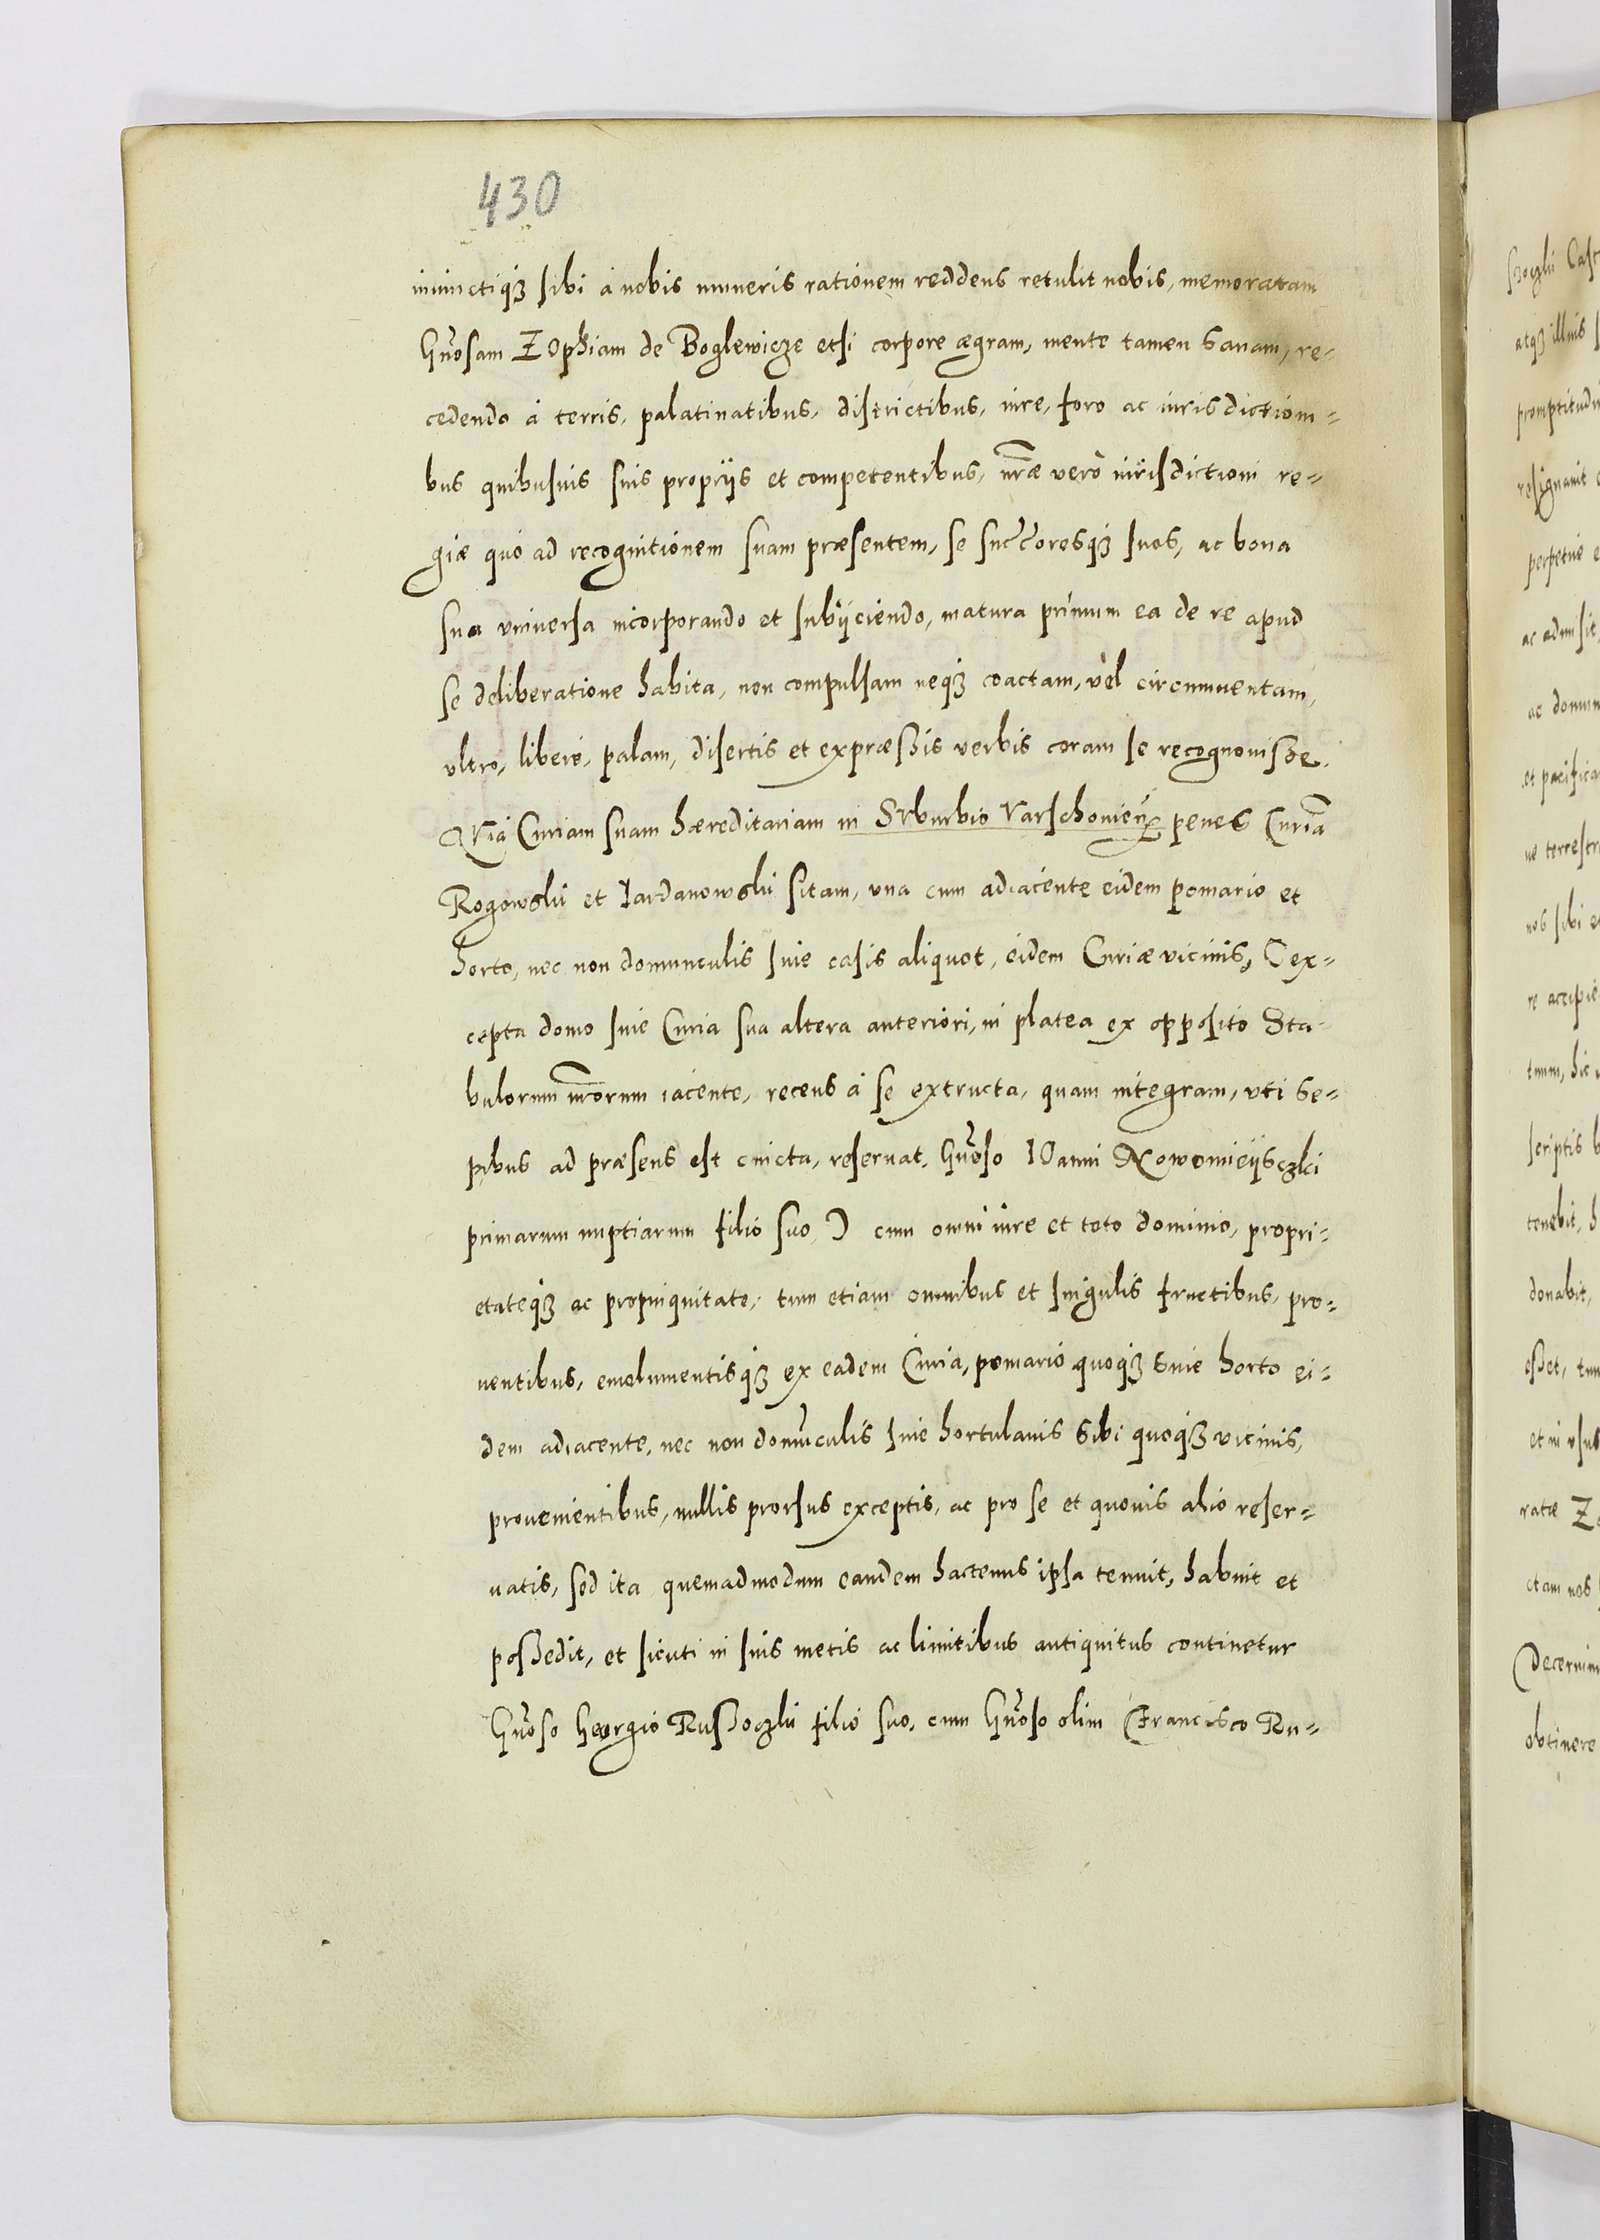 430
iniunctiq₃ sibi à nobis muneris rationem reddens retulit nobis, memoratam
Gn̄osam Zophiam de Boglewicze etsi corpore ægram, mente tamen sanam, re-
cedendo à terris, palatinatibus, districtibus, iure, foro ac iurisdictioni-
bus quibusuis suis proprijs et competentibus, nr̄æ verò iurisdictioni re-
giæ quò ad recognitionem suam præsentem, se succ̄oresq₃ suos, ac bona
sua vniuersa incorporando et subijciendo, matura primum ea de re apud
se deliberatione habita, non compulsam neq₃ coactam, vèl circumuentam,
vltro, liberè, palam, disertis et expræssis verbis coram se recognouisse.
Quia Curiam suam hæreditariam in Suburbio Varschouień penes Curiā
Rogowskii et Jardanowskii sitam, vna cum adiacente eidem pomario et
horto, nec non domunculis siue casis aliquot, eidem Curiæ vicinis, (ex-
cepta domo siue Curia sua altera anteriori, in platea ex opposito Sta-
bulorum nr̄orum iacente, recens à se extructa, quam integram, vti se-
pibus ad præsens est cincta, reseruat, Gn̄oso Ioanni Nowomieijsczki
primarum nuptiarum filio suo) cum omni iure et toto dominio, propri-
etateq₃ ac propinquitate, tum etiam omnibus et singulis fructibus, pro-
uentibus, emolumentisq₃ ex eadem Curia, pomario quoq₃ siue horto ei-
dem adiacente, nec non domūculis siue hortulanis sibi quoq₃ vicinis,
prouenientibus, nullis prorsus exceptis, ac pro se et quouis alio reser-
uatis, sed ita quemadmodum eandem hactenus ipsa tenuit, habuit et
possedit, et sicuti in suis metis ac limitibus antiquitus continetur
Gn̄oso Georgio Russoczkii filio suo, cum Gn̄oso olim Francisco Ru-